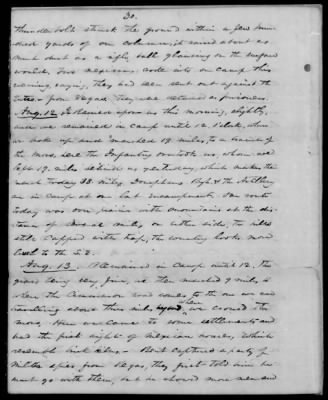 30.
thunderbolt struck the ground within a few hun-
dred yards of our column & raised about as
much dust as a rifle ball glancing on the surface
would. Two Mexicans rode into our Camp this
evening, saying, they had been sent out against the
from Vegas, they were detained as prisoners.
Aug. 12. It rained upon us this morning, slightly,
and we remained in camp until 12 o'clock, when
we rode up and marched 19 miles, to a branch of
the mora, here the Infantry overtook us, whom we
left 19 miles behind us yesterday, which makes their
march today 38 miles. Doniphan's Reg. & the Artillery
are in camp at our last encampment. Our route
today was over prairie with mountains at the dis-
tance of several miles on either side, the hills
still capped with trap, the country looks more
level to the S.E.
Aug. 13. Remained in Camp until 12, the
grass being very fine, we then marched 9 miles to
where the Cimmeron road comes to the one we are
travelling about three miles beyond when we crossed the
mora. Here we came to some settlements and
had the first sight of Mexican houses, which
resemble brick kilns. Bent captured a party of
Militia spies from Vegas, they first told him he
must go with them, but he showed more men and